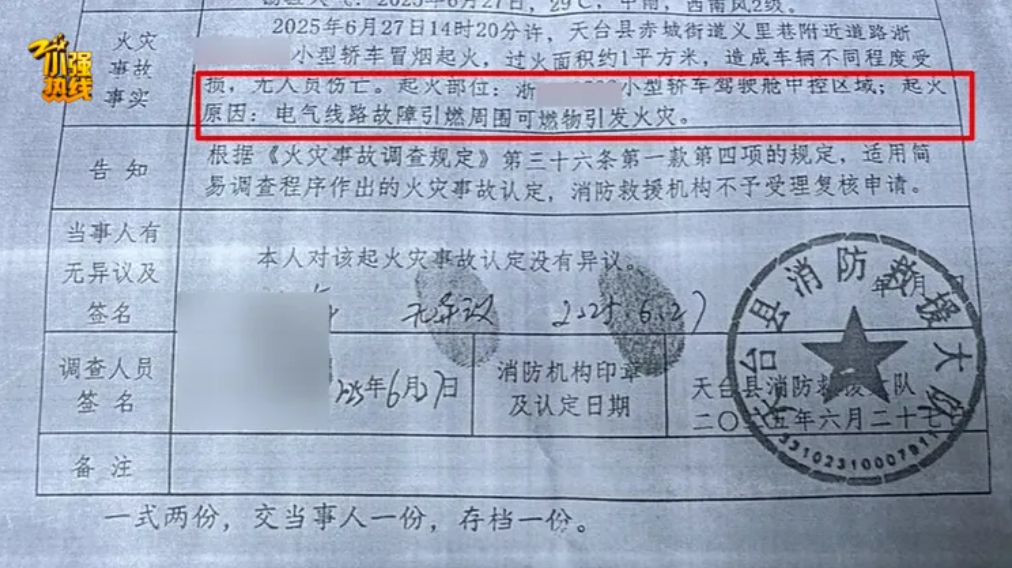 2025年6月27日，29℃，中雨，西南风2级。
火灾
事故
事实
2025年6月27日14时20分许，天台县赤城街道义里巷附近道路浙
小型轿车冒烟起火，过火面积约1平方米，造成车辆不同程度受
损，无人员伤亡。起火部位：浙 小型轿车驾驶舱中控区域；起火
原因：电气线路故障引燃周围可燃物引发火灾。
小强
热线
告知
根据《火灾事故调查规定》第三十六条第一款第四项的规定，适用简
易调查程序作出的火灾事故认定，消防救援机构不予受理复核申请。
当事人有
无异议及
签名
本人对该起火灾事故认定没有异议。
年 月 日
无异议 2025.6.27
调查人员
签名
2025年6月27日
消防机构印章
及认定日期
天台县消防救援大队
二〇二五年六月二十七
天台县消防救援大队
33102310007911
备注
一式两份，交当事人一份，存档一份。